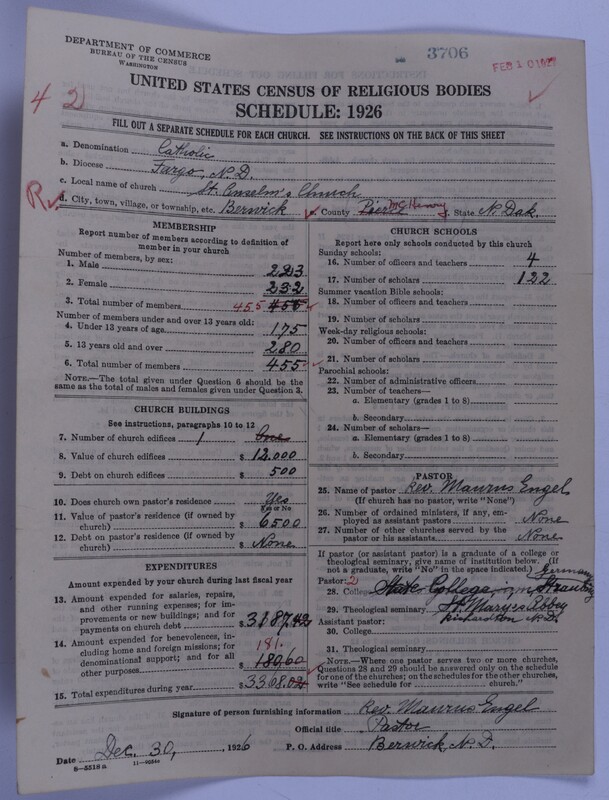 DEPARTMENT OF COMMERCE
BUREAU OF THE CENSUS
WASHINGTON
3706
FEB 10 1927
4 2
UNITED STATES CENSUS OF RELIGIOUS BODIES
SCHEDULE: 1926
FILL OUT A SEPARATE SCHEDULE FOR EACH CHURCH. SEE INSTRUCTIONS ON THE BACK OF THIS SHEET
a. Denomination Catholic
b. Diocese Fargo, N.D.
c. Local name of church St. Anselm's Church
R d. City, town, village, or township, etc. Berwick e. County Pierce McHenry f. State N. Dak.
MEMBERSHIP
Report number of members according to definition of member in your church
Number of members, by sex:
1. Male 223
2. Female 232
3. Total number of members 455 455
Number of members under and over 13 years old:
4. Under 13 years of age 175
5. 13 years old and over 280
6. Total number of members 455
NOTE.—The total given under Question 6 should be the
same as the total of males and females given under Question 3.
CHURCH BUILDINGS
See instructions, paragraphs 10 to 12
7. Number of church edifices 1 One
8. Value of church edifices $ 12,000
9. Debt on church edifices $ 500
10. Does church own pastor's residence Yes
Yes or No
11. Value of pastor's residence (if owned by
church) $ 6500
12. Debt on pastor's residence (if owned by
church) $ None
EXPENDITURES
Amount expended by your church during last fiscal year
13. Amount expended for salaries, repairs,
and other running expenses; for im-
provements or new buildings; and for
payments on church debt $ 3187.42
14. Amount expended for benevolences, in-
cluding home and foreign missions; for
denominational support; and for all
other purposes 181. 180.60
15. Total expenditures during year $ 3368.02
CHURCH SCHOOLS
Report here only schools conducted by this church
Sunday schools:
16. Number of officers and teachers 4
17. Number of scholars 122
Summer vacation Bible schools:
18. Number of officers and teachers
19. Number of scholars
Week-day religious schools:
20. Number of officers and teachers
21. Number of scholars
Parochial schools:
22. Number of administrative officers
23. Number of teachers—
a. Elementary (grades 1 to 8)
b. Secondary
24. Number of scholars—
a. Elementary (grades 1 to 8)
b. Secondary
PASTOR
25. Name of pastor Rev. Maurus Engel
(If church has no pastor, write "None")
26. Number of ordained ministers, if any, em-
ployed as assistant pastors None
27. Number of other churches served by the
pastor or his assistants None
If pastor (or assistant pastor) is a graduate of a college or
theological seminary, give name of institution below. (If
not a graduate, write "No" in the space indicated.) Germany
Pastor: 2
28. College State College in Straubing
29. Theological seminary St. Marys Abbey
Assistant pastor: Richardton N.D.
30. College
31. Theological seminary
NOTE.—Where one pastor serves two or more churches,
Questions 28 and 29 should be answered only on the schedule
for one of the churches; on the schedules for the other churches,
write "See schedule for church."
Signature of person furnishing information Rev. Maurus Engel
Official title Pastor
Date Dec. 30, 1926 P. O. Address Berwick N.D.
8—5518a 11—9084a